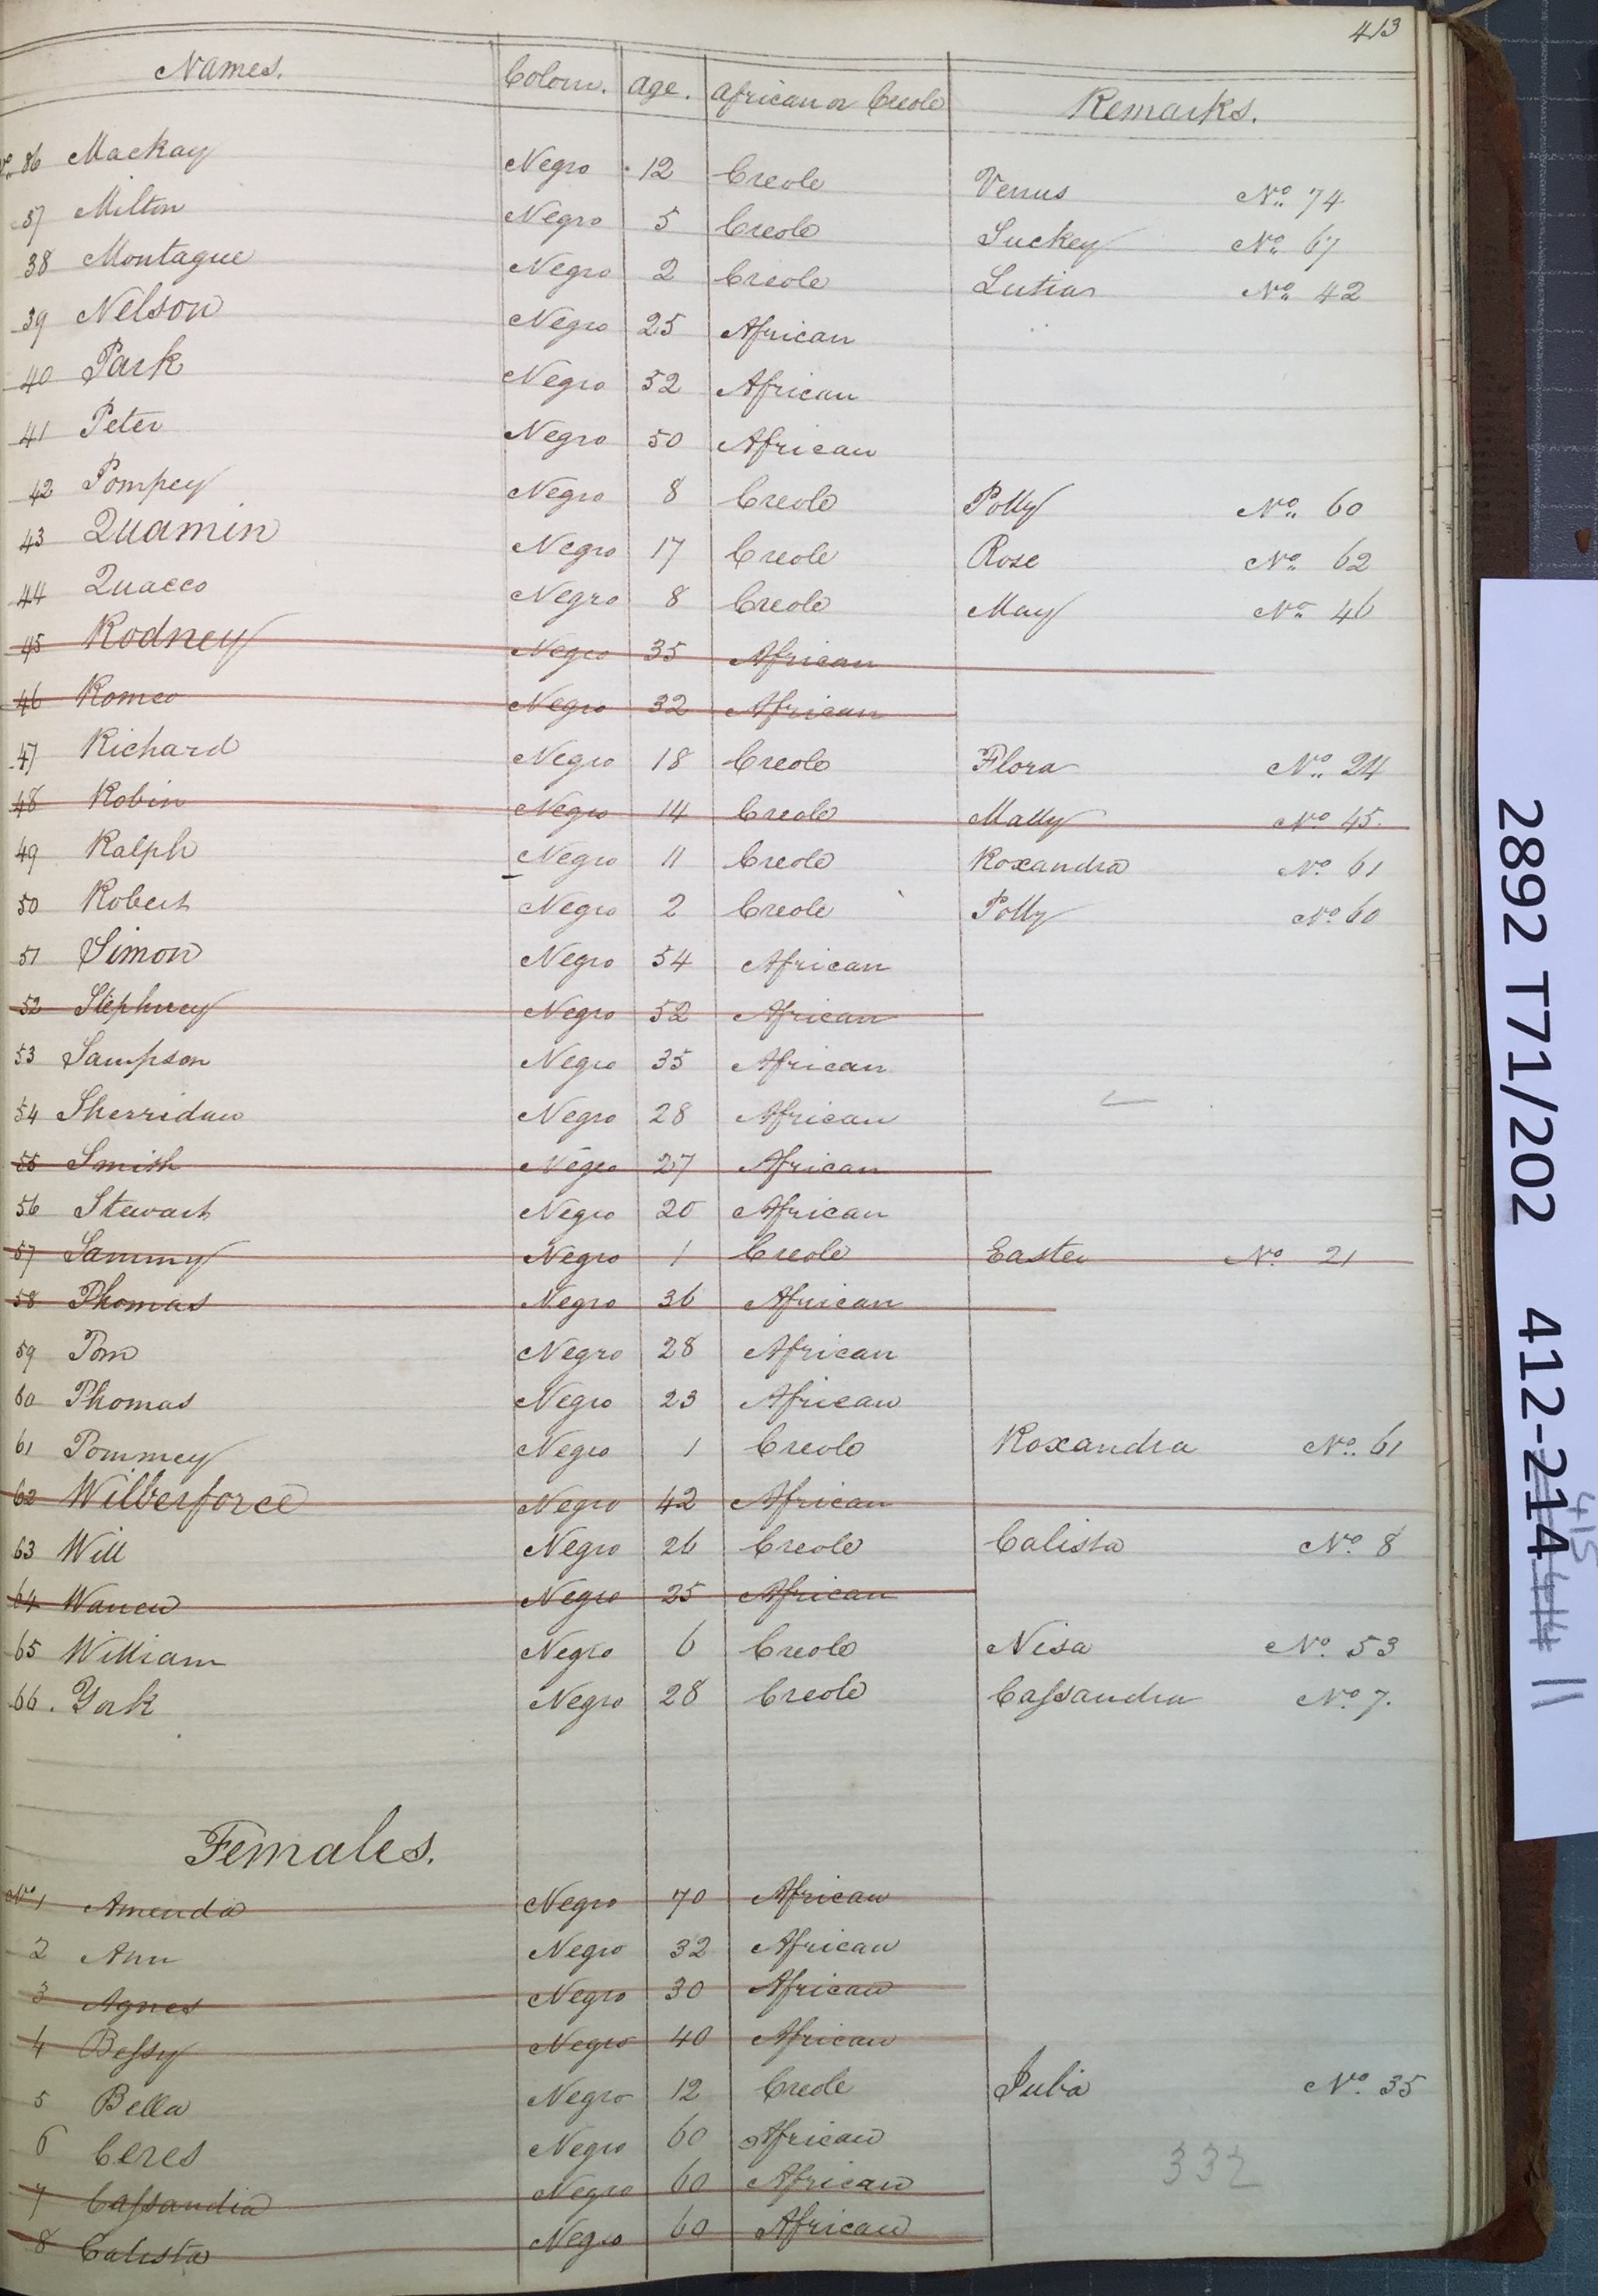 413
Names. Colour. Age. African or Creole Remarks.
No. 36 Mackay Negro 12 Creole Venus No. 74
37 Milton Negro 5 Creole Suckey No. 67
38 Montague Negro 2 Creole Lutia No. 42
39 Nelson Negro 25 African
40 Park Negro 52 African
41 Peter Negro 50 African
42 Pompey Negro 8 Creole Polly No. 60
43 Quamin Negro 17 Creole Rose No. 62
44 Quacco Negro 8 Creole May No. 46
45 Rodney Negro 35 African
46 Romeo Negro 32 African
47 Richard Negro 18 Creole Flora No. 24
48 Robin Negro 14 Creole Mally No. 45.
49 Ralph Negro 11 Creole Roxandra No. 61
50 Robert Negro 2 Creole Polly No. 60
51 Simon Negro 54 African
52 Stephney Negro 52 African
53 Sampson Negro 35 African
54 Sherridan Negro 28 African
55 Smith Negro 27 African
56 Stewart Negro 20 African
57 Sammy Negro 1 Creole Easter No. 21
58 Thomas Negro 36 African
59 Tom Negro 28 African
60 Thomas Negro 23 African
61 Tommey Negro 1 Creole Roxandra No. 61
62 Wilberforce Negro 42 African
63 Will Negro 26 Creole Calista No. 8
64 Warren Negro 25 African
65 William Negro 6 Creole Nisa No. 53
66. York Negro 28 Creole Cassandra No. 7.
Females.
No. 1 Amenda Negro 70 African
2 Ann Negro 32 African
3 Agnes Negro 30 African
4 Bessy Negro 40 African
5 Bella Negro 12 Creole Juba No. 35
6 Ceres Negro 60 African
7 Cassandra Negro 60 African
8 Calista Negro 60 African
332
2892 T71/202 412-214 414 11
415